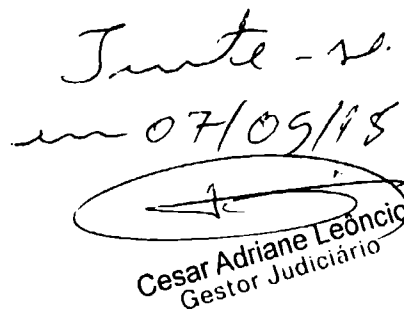 Junte-se.
em 07/09/15
Cesar Adriane Leôncio
Gestor Judiciário